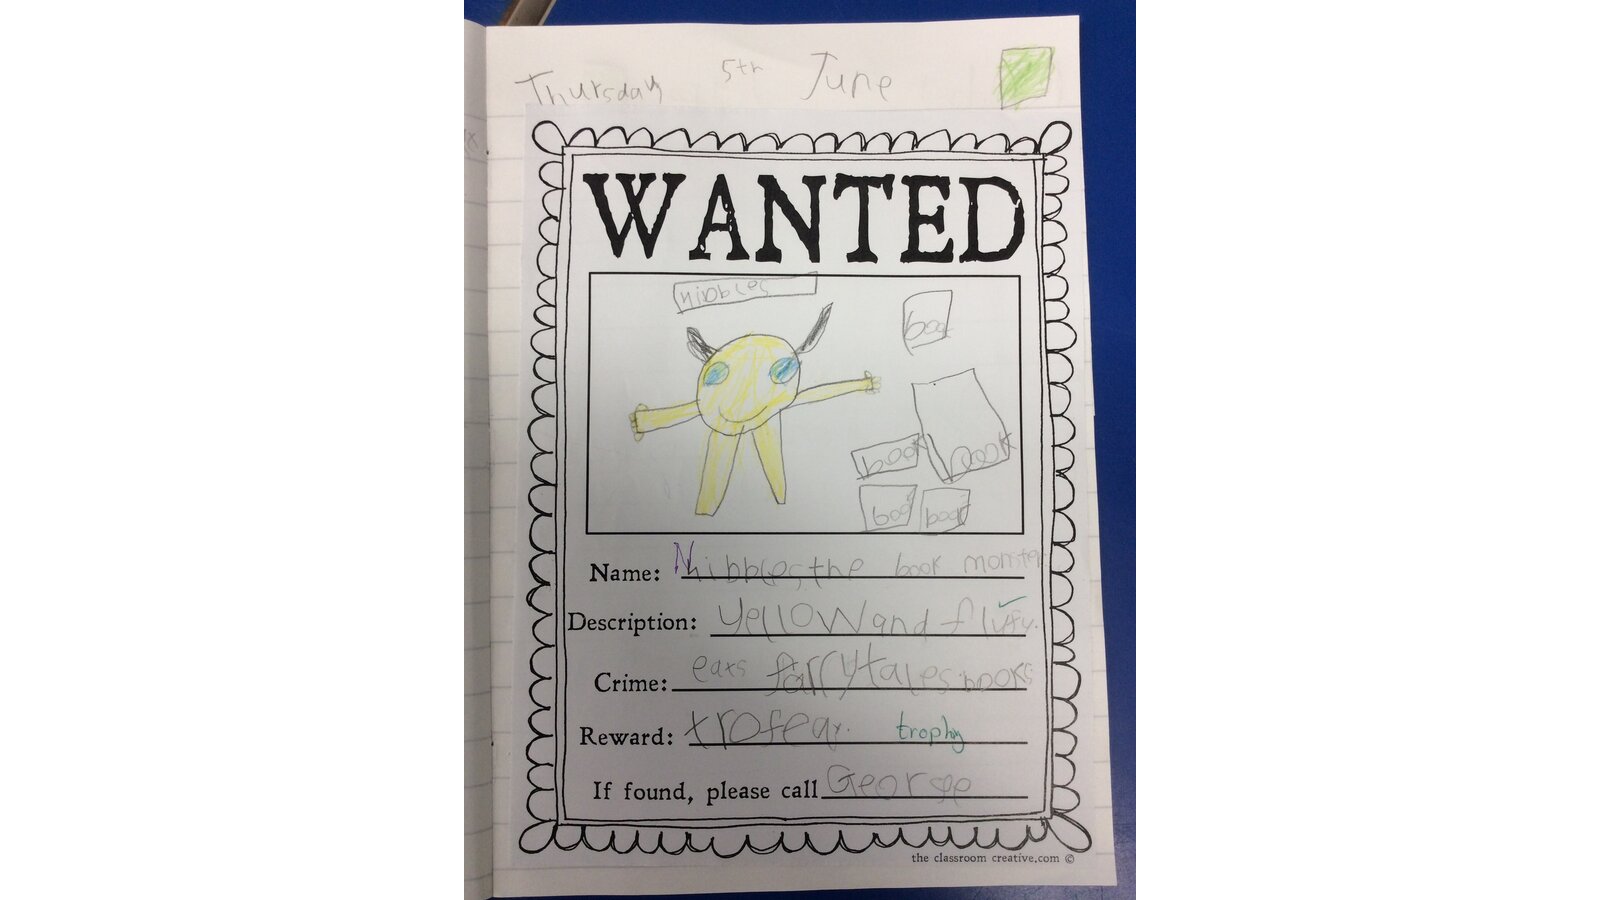 Thursday 5th June
WANTED
nibbles
book
book
book
boo
book
Name: Nnibbles the book monster
Description: yellow and fluffy.
Crime: eats fairytales books
Reward: trofea trophy
If found, please call George
the classroom creative.com ©